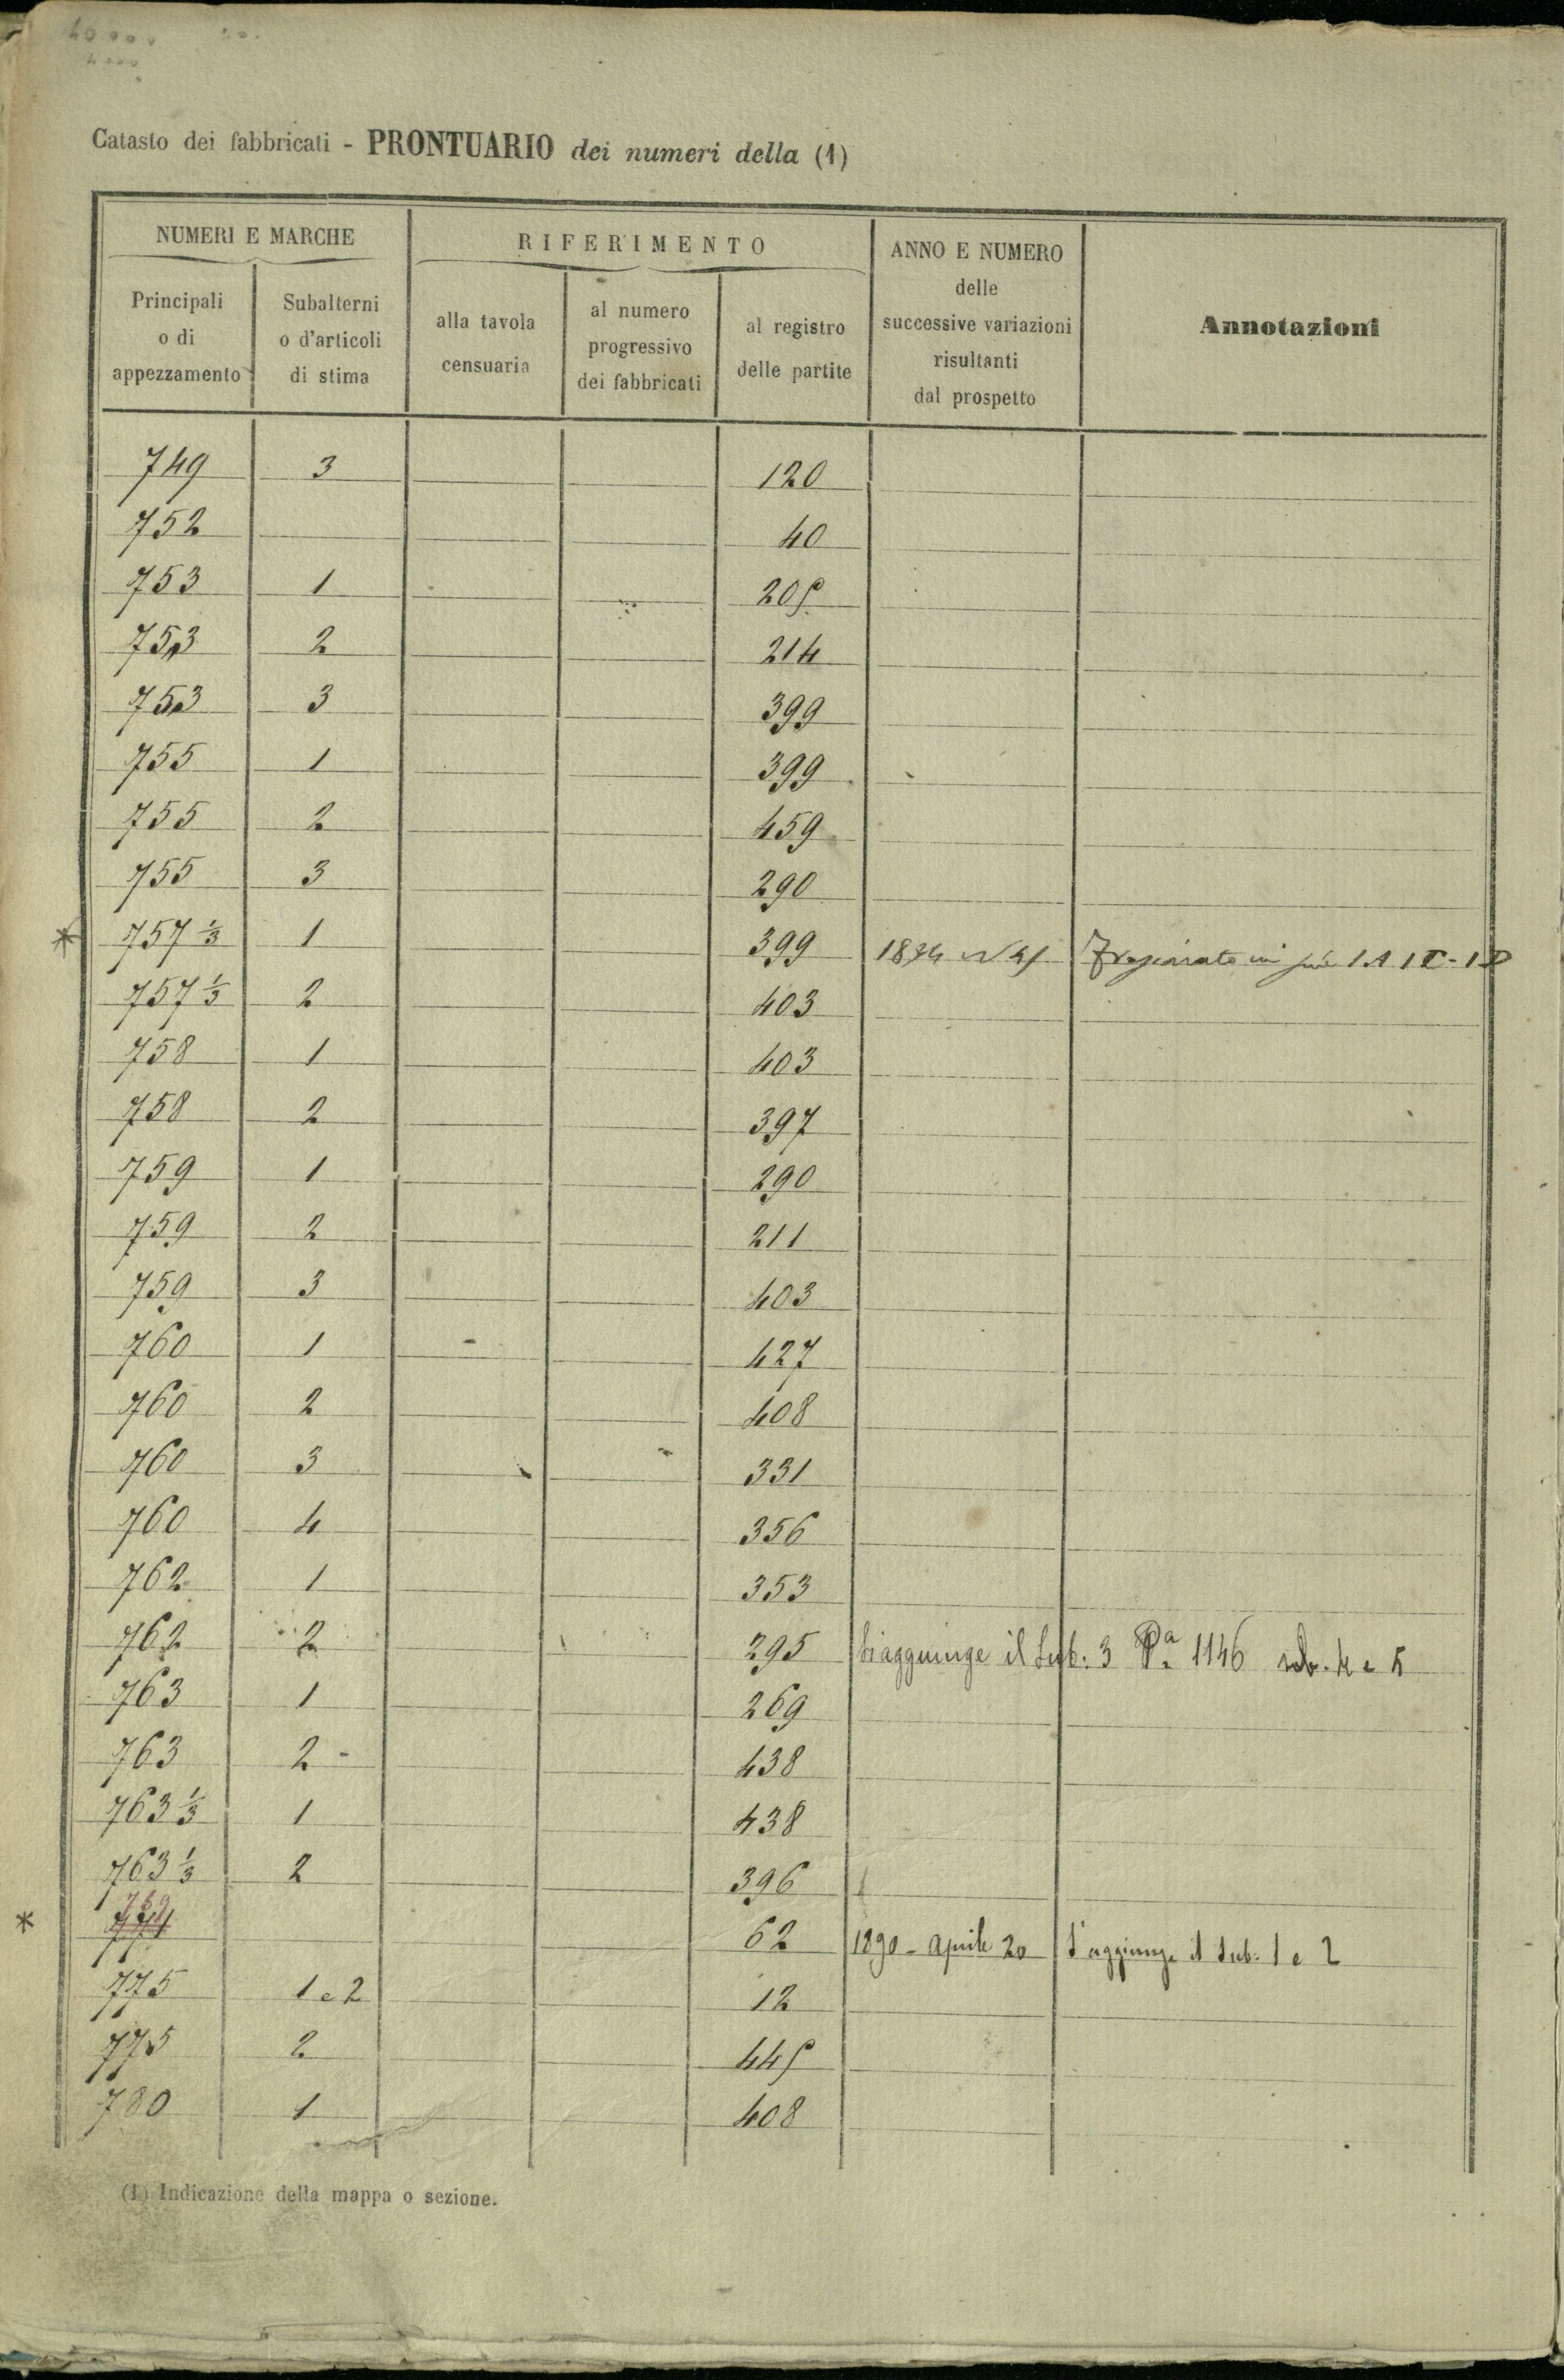 Catasto dei fabbricati - PRONTUARIO dei numeri della (1)
NUMERI E MARCHE
RIFERIMENTO
ANNO E NUMERO delle successive variazioni risultanti dal prospetto
Annotazioni
Principali o di appezzamento
Subalterni o d'articoli di stima
alla tavola censuaria
al numero progressivo dei fabbricati
al registro delle partite
749 3 120
752 40
753 1 205
753 2 214
753 3 399
755 1 399
755 2 459
755 3 290
* 757 1/3 1 399
757 1/3 2 403
758 1 403
758 2 397
759 1 290
759 2 211
759 3 403
760 1 427
760 2 408
760 3 331
760 4 356
762 1 353
762 2 295 Si aggiunge il Sub. 3 Pa 1146 sub. 4 e 5
763 1 269
763 2 438
763 1/3 1 438
763 1/3 2 396
* 62 1890 - Aprile 20 S'aggiunge il Sub. 1 e 2
775 1 e 2 12
775 2 445
780 1 408
(1) Indicazione della mappa o sezione.